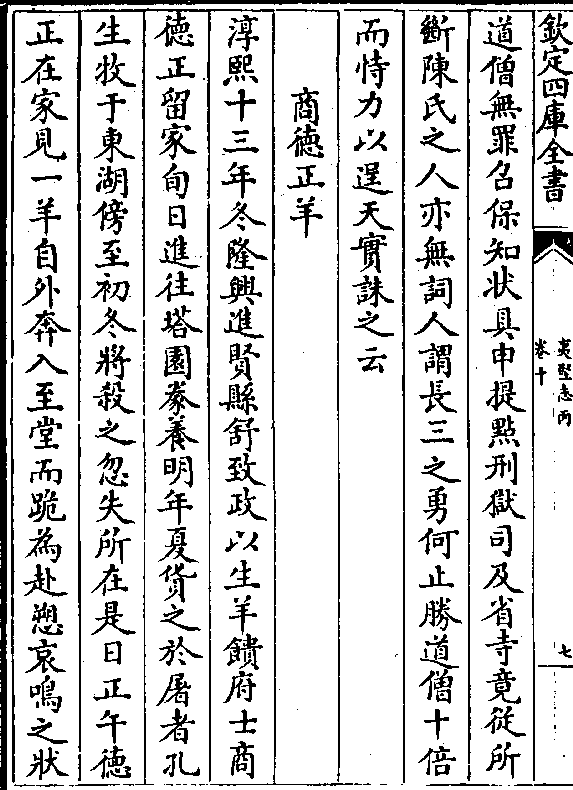 欽定四庫全書
夷堅志丙
卷十
七
道僧無罪召保知狀具申提點刑獄司及省寺竟從所
斷陳氏之人亦無詞人謂長三之勇何止勝道僧十倍
而恃力以逞天實誅之云
商德正羊
淳熙十三年冬隆興進賢縣舒致政以生羊饋府士商
德正留家旬日進往塔園豢養明年夏貨之於屠者孔
生牧于東湖傍至初冬將殺之忽失所在是日正午德
正在家見一羊自外奔入至堂而跪為赴愬哀鳴之狀